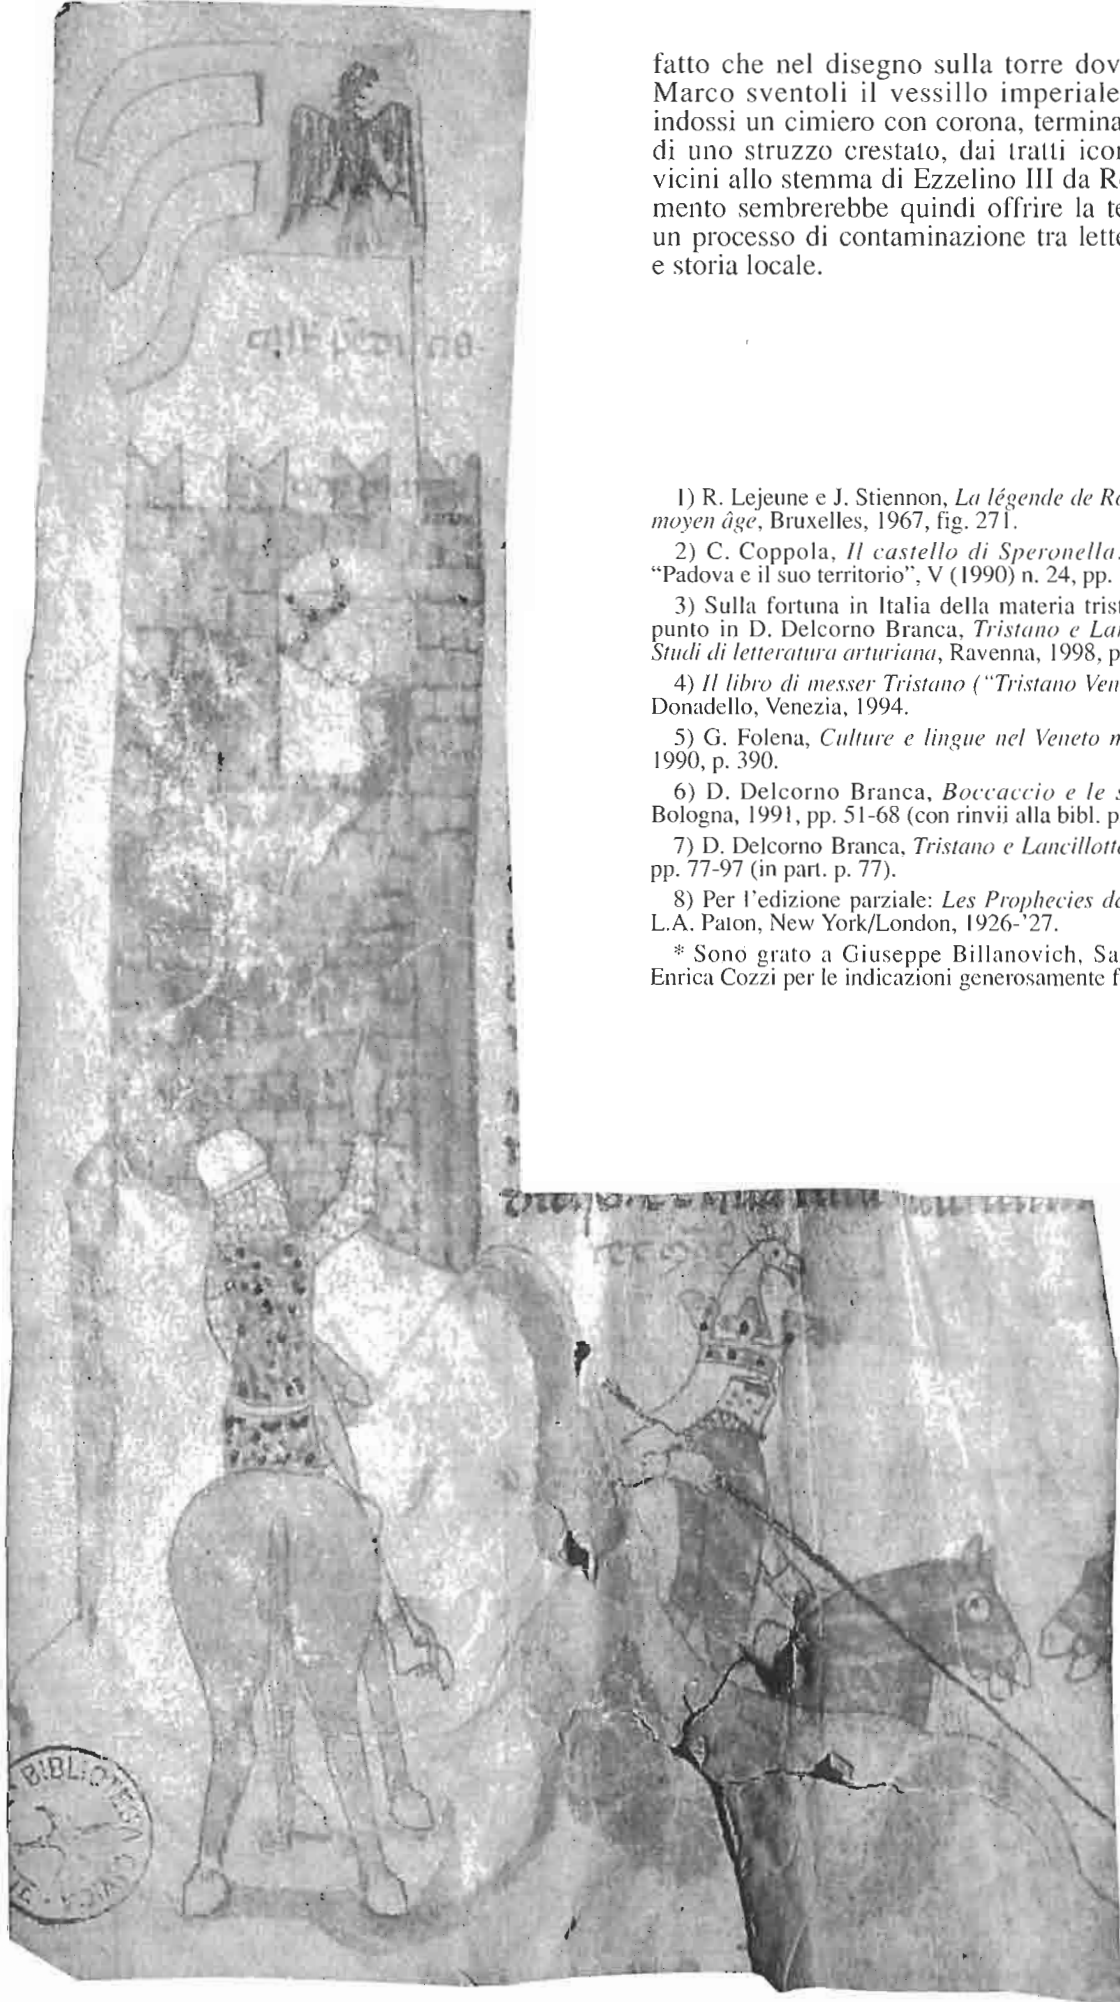 fatto che nel disegno sulla torre dov
Marco sventoli il vessillo imperiale
indossi un cimiero con corona, termina
di uno struzzo crestato, dai tratti icon
vicini allo stemma di Ezzelino III da R
mento sembrerebbe quindi offrire la te
un processo di contaminazione tra lette
e storia locale.
1) R. Lejeune e J. Stiennon, La légende de Ro
moyen âge, Bruxelles, 1967, fig. 271.
2) C. Coppola, Il castello di Speronella.
“Padova e il suo territorio”, V (1990) n. 24, pp.
3) Sulla fortuna in Italia della materia trist
punto in D. Delcorno Branca, Tristano e Lan
Studi di letteratura arturiana, Ravenna, 1998, p
4) Il libro di messer Tristano (“Tristano Ven
Donadello, Venezia, 1994.
5) G. Folena, Culture e lingue nel Veneto m
1990, p. 390.
6) D. Delcorno Branca, Boccaccio e le s
Bologna, 1991, pp. 51-68 (con rinvii alla bibl. p
7) D. Delcorno Branca, Tristano e Lancillotto
pp. 77-97 (in part. p. 77).
8) Per l’edizione parziale: Les Prophecies de
L.A. Paton, New York/London, 1926-’27.
* Sono grato a Giuseppe Billanovich, Sa
Enrica Cozzi per le indicazioni generosamente f
BIBLIOTECA CIVICA